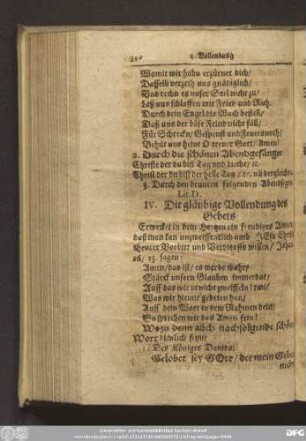 350 4. Vollendung
Womit wir habn erzürnet dich/
Dasselb verzeih uns gnädiglich/
Vnd rechn es unser Seel nicht zu/
Laß uns schlaffen mit Fried und Ruh.
Durch dein Engl die Wach bestell/
Daß uns der böse Feind nicht fäll/
Für Schrecken/ Gespenst und Feuersnoth/
Behüt uns heint O treuer Gott/ Amen!
2. Durch die schönen Abendgesänge:
Christe der du bist Tag und Liecht/ ꝛc.
Christ der du bist der helle Tag/ ꝛc. uñ dergleichẽ.
3. Durch den drunten folgenden Abendsegen
Lit. D.
IV. Die gläubige Vollendung des
Gebets
Erwecket in dem Hertzen ein freudiges Amen
daß man kan
theurer Vorbitt und
16/ 23. sagen:
Amen/ das ist/ es werde wahr/
Stärck unsern Glauben immerdar/
Auff das wir ja nicht zweiffeln dran/
Was wir hiemit gebeten han/
Auff dein Wort in dem Nahmen dein/
So sprechen wir das Amen fein!
Wozu dann auch nachfolgende schöne
Wort dienlich seyn:
1. Des Königes Davids:
Gelobet sey GOtt/ der mein Gebet